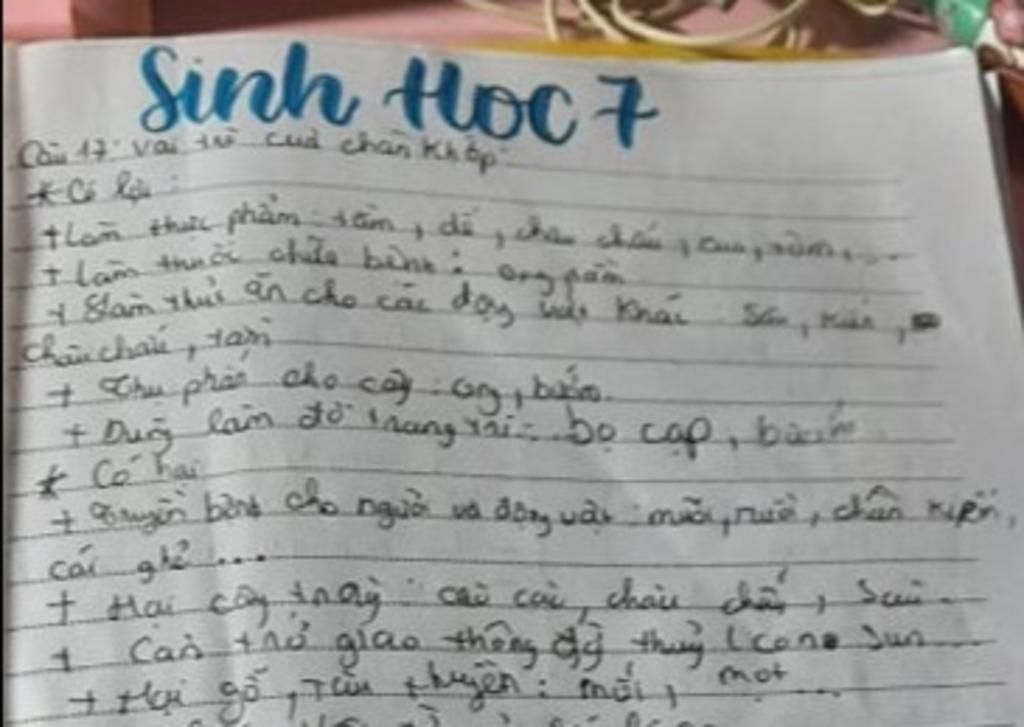 Sinh Học 7
Câu 17: Vai trò của chân khớp.
* Có lợi :
+ Làm thực phẩm : tôm, dế, châu chấu, cua, ...
+ Làm thuốc chữa bệnh : ong
+ Làm thức ăn cho các động vật khác : sâu,
châu chấu,
+ Thụ phấn cho cây : ong, bướm.
+ Dùng làm đồ trang trí : bọ cạp, bướm
* Có hại
+ Truyền bệnh cho người và động vật : muỗi, ruồi,
cái ghẻ ...
+ Hại cây trồng : cào cào, châu chấu, sâu
+ Cản trở giao thông thuỷ (con sun
+ Hại gỗ, tàu thuyền : mối, mọt ...